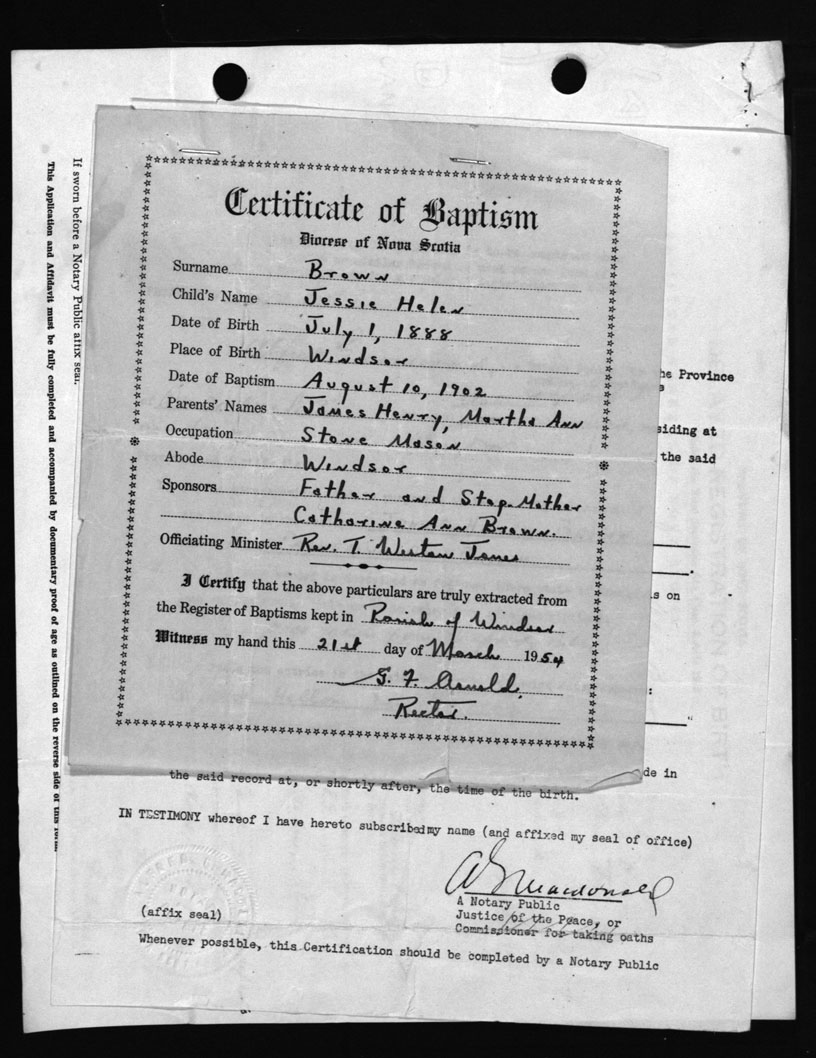 If sworn before a Notary Public affix seal.
This Application and Affidavit must be fully completed and accompanied by documentary proof of age as outlined on the reverse side of this
Certificate of Baptism
Diocese of Nova Scotia
Surname Brown
Child's Name Jessie Helen
Date of Birth July 1, 1888
Place of Birth Windsor
Date of Baptism August 10, 1902
Parents' Names James Henry, Martha Ann
Occupation Stone Mason
Abode Windsor
Sponsors Father and Step-Mother
Catharine Ann Brown.
Officiating Minister Rev. T. Weston Jones
I Certify that the above particulars are truly extracted from
the Register of Baptisms kept in Parish of Windsor
Witness my hand this 21st day of March 1954
G. F. Arnold,
Rector.
he Province
siding at
the said
s on
de in
the said record at, or shortly after, the time of the birth.
IN TESTIMONY whereof I have hereto subscribed my name (and affixed my seal of office)
Macdonald
A Notary Public
Justice of the Peace, or
(affix seal)
Commissioner for taking oaths
Whenever possible, this Certification should be completed by a Notary Public